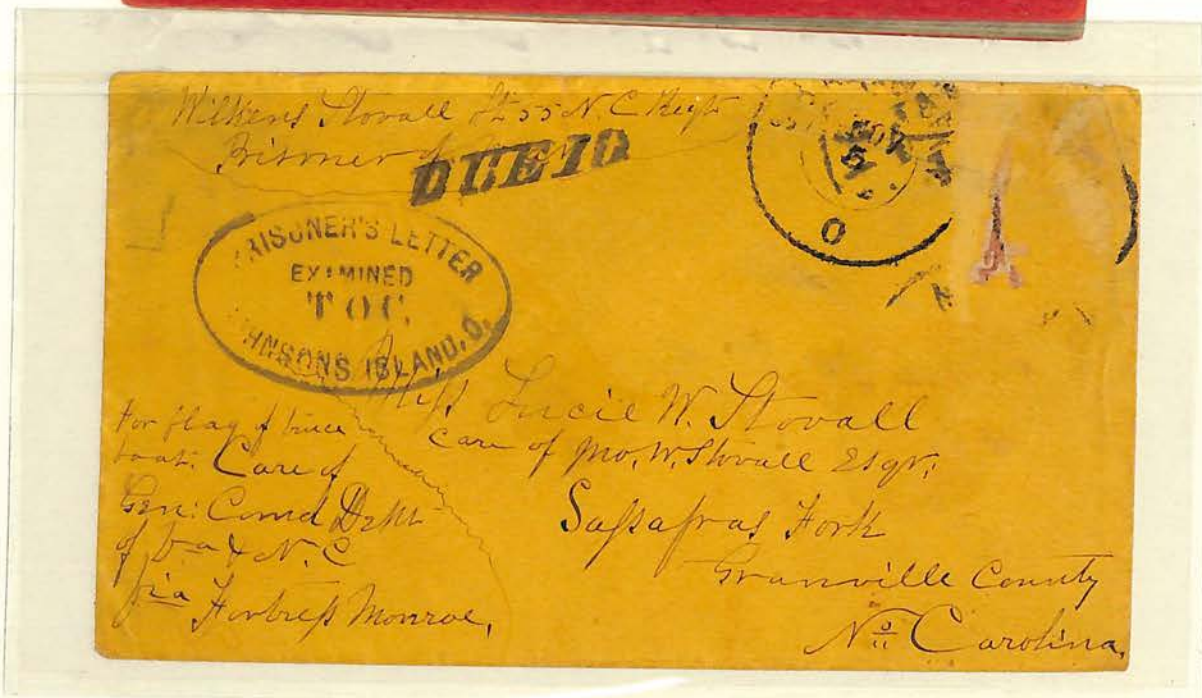 Wilkins Stovall Lt 55 N. C. Regt
Prisoner of
DUE 10
PRISONER'S LETTER
EXAMINED
T O C.
JOHNSONS ISLAND, O.
O
Miss Lucie W. Stovall
Care of Jno. W. Stovall Esqr.
Sassafras Fork
Granville County
No Carolina.
For flag of truce
boat. Care of
Gen: Comd Dept
of Va & N. C
via Fortress Monroe,